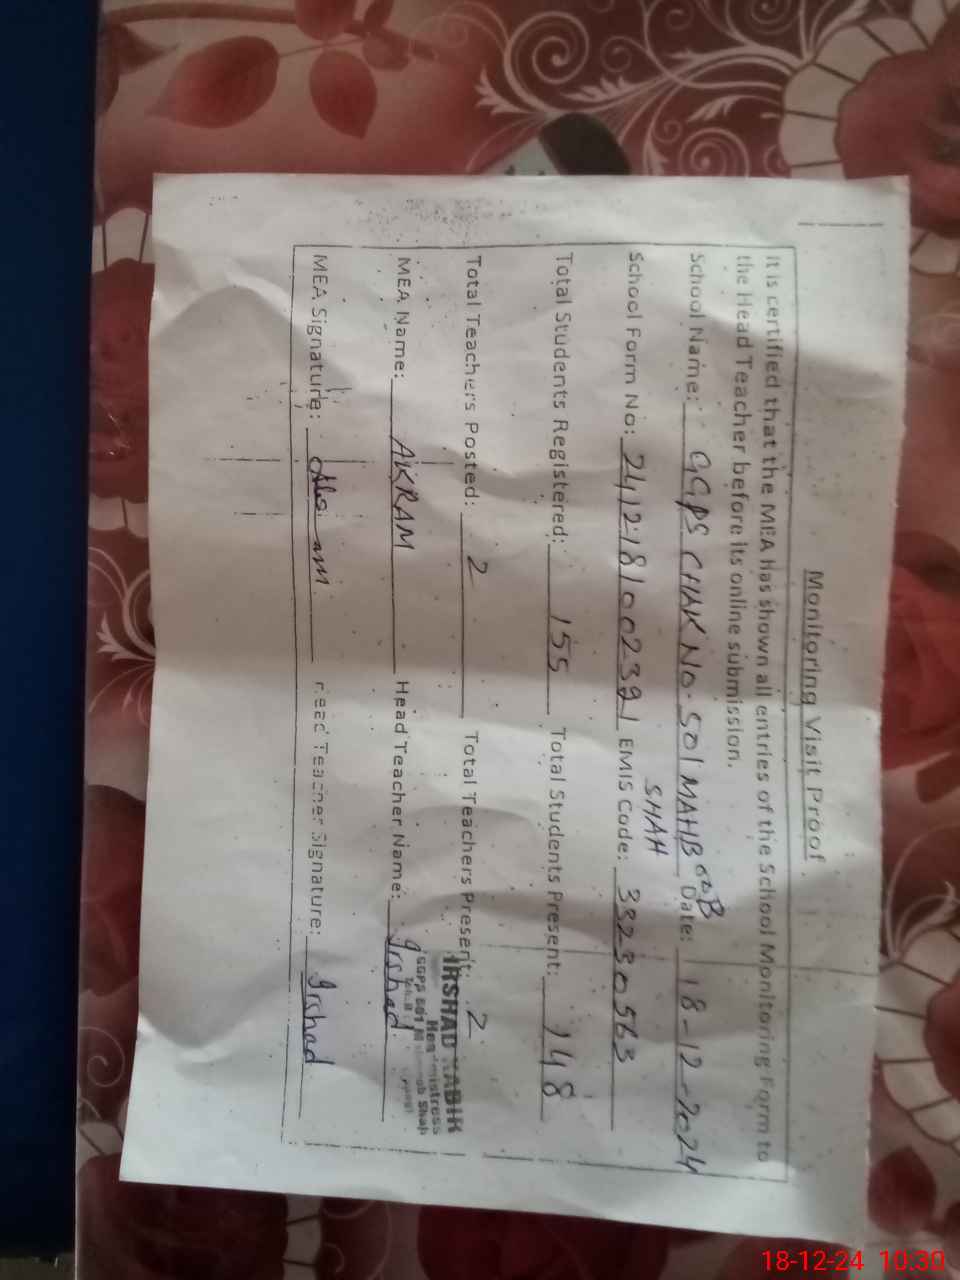 Monitoring Visit Proof
It is certified that the MEA has shown all entries of the School Monitoring Form to
the Head Teacher before its online submission.
School Name: GGPS CHAK NO. 501 MAHBOOB Date: 18-12-2024
SHAH
School Form No: 2412181002391 EMIS Code: 33230563
Total Students Registered: 155 Total Students Present: 148
Total Teachers Posted: 2 Total Teachers Present: 2
IRSHAD KABIR
MEA Name: AKRAM Head Teacher Name: Irshad
GGPS 501 Shah
MEA Signature: Head Teacher Signature: Irshad
18-12-24 10:30